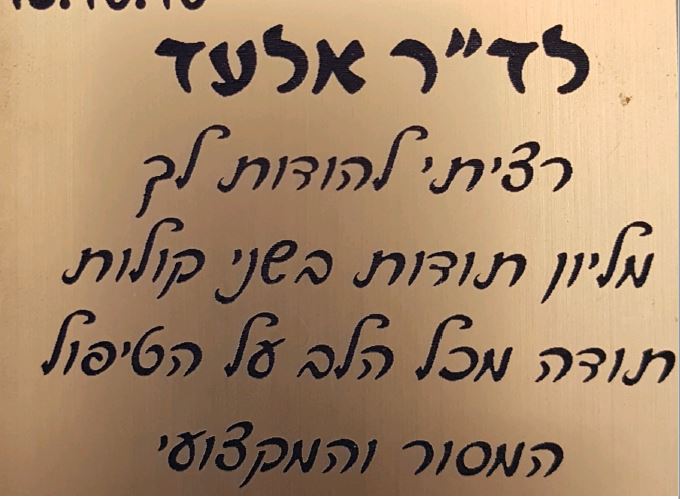 לד"ר אלעד
רציתי להודות לך
מליון תודות בשני קולות
תודה מכל הלב על הטיפול
המסור והמקצועי